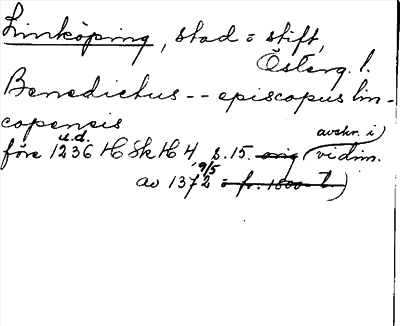 Linköping, stad o stift,
Österg. l.
Benedictus -- episcopus lin-
copensis
u.d. avskr. i
före 1236 HSkH 4, s. 15. orig (vidim.
9/5
av 1372 o fr. 1800-t.)